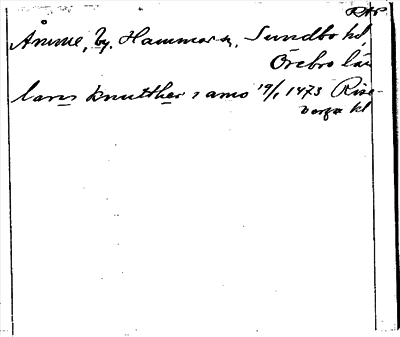 RAP
Åmme, by, Hammar sn, Sundbo hd,
Örebro län
lares knutther i amo 19/1 1473 Rise-
berga kl